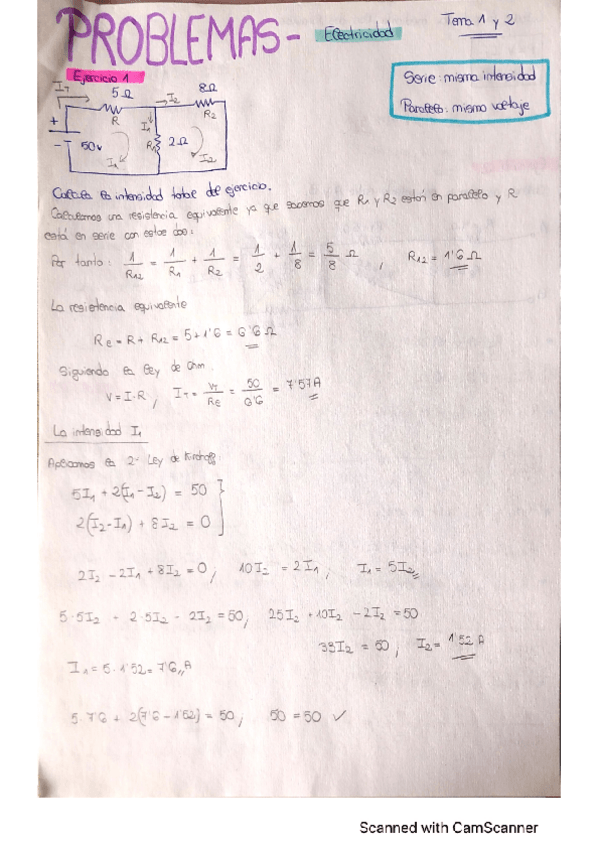 PROBLEMAS- Electricidad Tema 1 y 2
Ejercicio 1
Serie: misma intensidad
Paralelo: mismo voltaje
IT 5Ω I2 8Ω
R I1 R2
+
- 50v R1 2Ω
I1 I2
Calcula la intensidad total del ejercicio.
Calculamos una resistencia equivalente ya que sabemos que R1 y R2 están en paralelo y R
está en serie con estas dos:
Por tanto: 1/R12 = 1/R1 + 1/R2 = 1/2 + 1/8 = 5/8 Ω , R12 = 1'6 Ω
La resistencia equivalente
Re = R + R12 = 5 + 1'6 = 6'6 Ω
Siguiendo la ley de Ohm.
V = I·R , IT = VT/Re = 50/6'6 = 7'57A
La intensidad I1
Aplicamos la 2ª Ley de Kirchoff:
5I1 + 2(I1 - I2) = 50
2(I2 - I1) + 8I2 = 0
2I2 - 2I1 + 8I2 = 0, 10I2 = 2I1, I1 = 5I2
5·5I2 + 2·5I2 - 2I2 = 50, 25I2 + 10I2 - 2I2 = 50
33I2 = 50, I2 = 1'52 A
I1 = 5·1'52 = 7'6 A
5·7'6 + 2(7'6 - 1'52) = 50, 50 = 50 ✓
Scanned with CamScanner